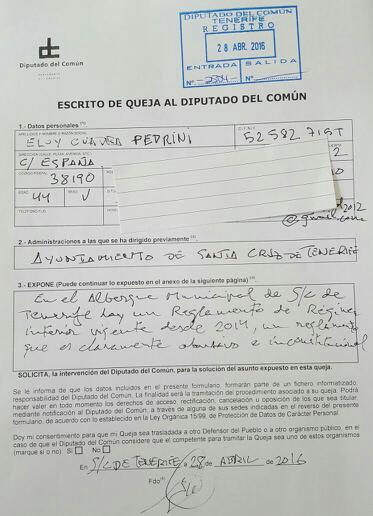 dc
Diputado del Común
DIPUTADO DEL COMÚN
TENERIFE
REGISTRO
28 ABR. 2016
ENTRADA SALIDA
Nº. Nº.
ESCRITO DE QUEJA AL DIPUTADO DEL COMÚN
1.- Datos personales
APELLIDOS Y NOMBRE O RAZÓN SOCIAL
ELOY CUADRA PEDRINI
C/ ESPAÑA
CÓDIGO POSTAL
38190
EDAD 44 V
TELÉFONO FIJO
2012
@gmail.com
2.- Administraciones a las que se ha dirigido previamente
AYUNTAMIENTO DE SANTA CRUZ DE TENERIFE
3.- EXPONE (Puede continuar lo expuesto en el anexo de la siguiente página)
En el Albergue Municipal de S/C de
Tenerife hay un Reglamento de Régimen
interior vigente desde 2014, un reglamento
que es claramente abusivo e inconstitucional
SOLICITA, la intervención del Diputado del Común, para la solución del asunto expuesto en esta queja.
Se le informa de que los datos incluidos en el presente formulario, formarán parte de un fichero informatizado,
responsabilidad del Diputado del Común. La finalidad será la tramitación del procedimiento asociado a su queja. Podrá
hacer valer en todo momento los derechos de acceso, rectificación, cancelación u oposición de los que sea titular,
mediante notificación al Diputado del Común, a través de alguna de sus sedes indicadas en el reverso del presente
formulario, de acuerdo con lo establecido en la Ley Orgánica 15/99, de Protección de Datos de Carácter Personal.
Doy mi consentimiento para que mi Queja sea trasladada a otro Defensor del Pueblo o a otro organismo público, en el
caso de que el Diputado del Común considere que el competente para tramitar la Queja sea uno de estos organismos
(marque si o no). Si No
En S/C DE TENERIFE, a 28 de ABRIL de 2016
Fdo